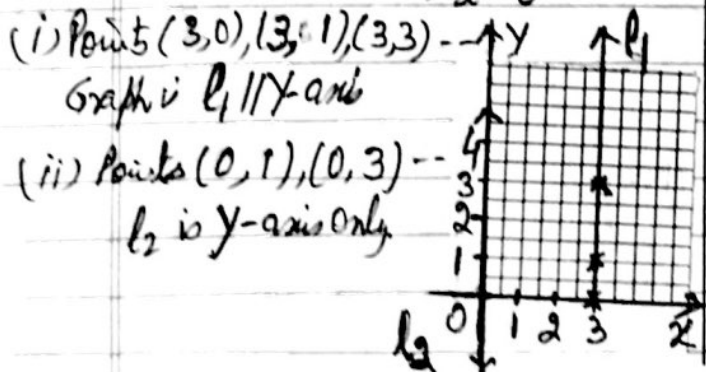 (i) Points (3,0), (3, 1), (3,3) ---
Graph is l₁ || Y-axis
(ii) Points (0,1), (0,3) ---
l₂ is Y-axis Only.
Y l₁
4
3
2
1
0 1 2 3 x
l₂